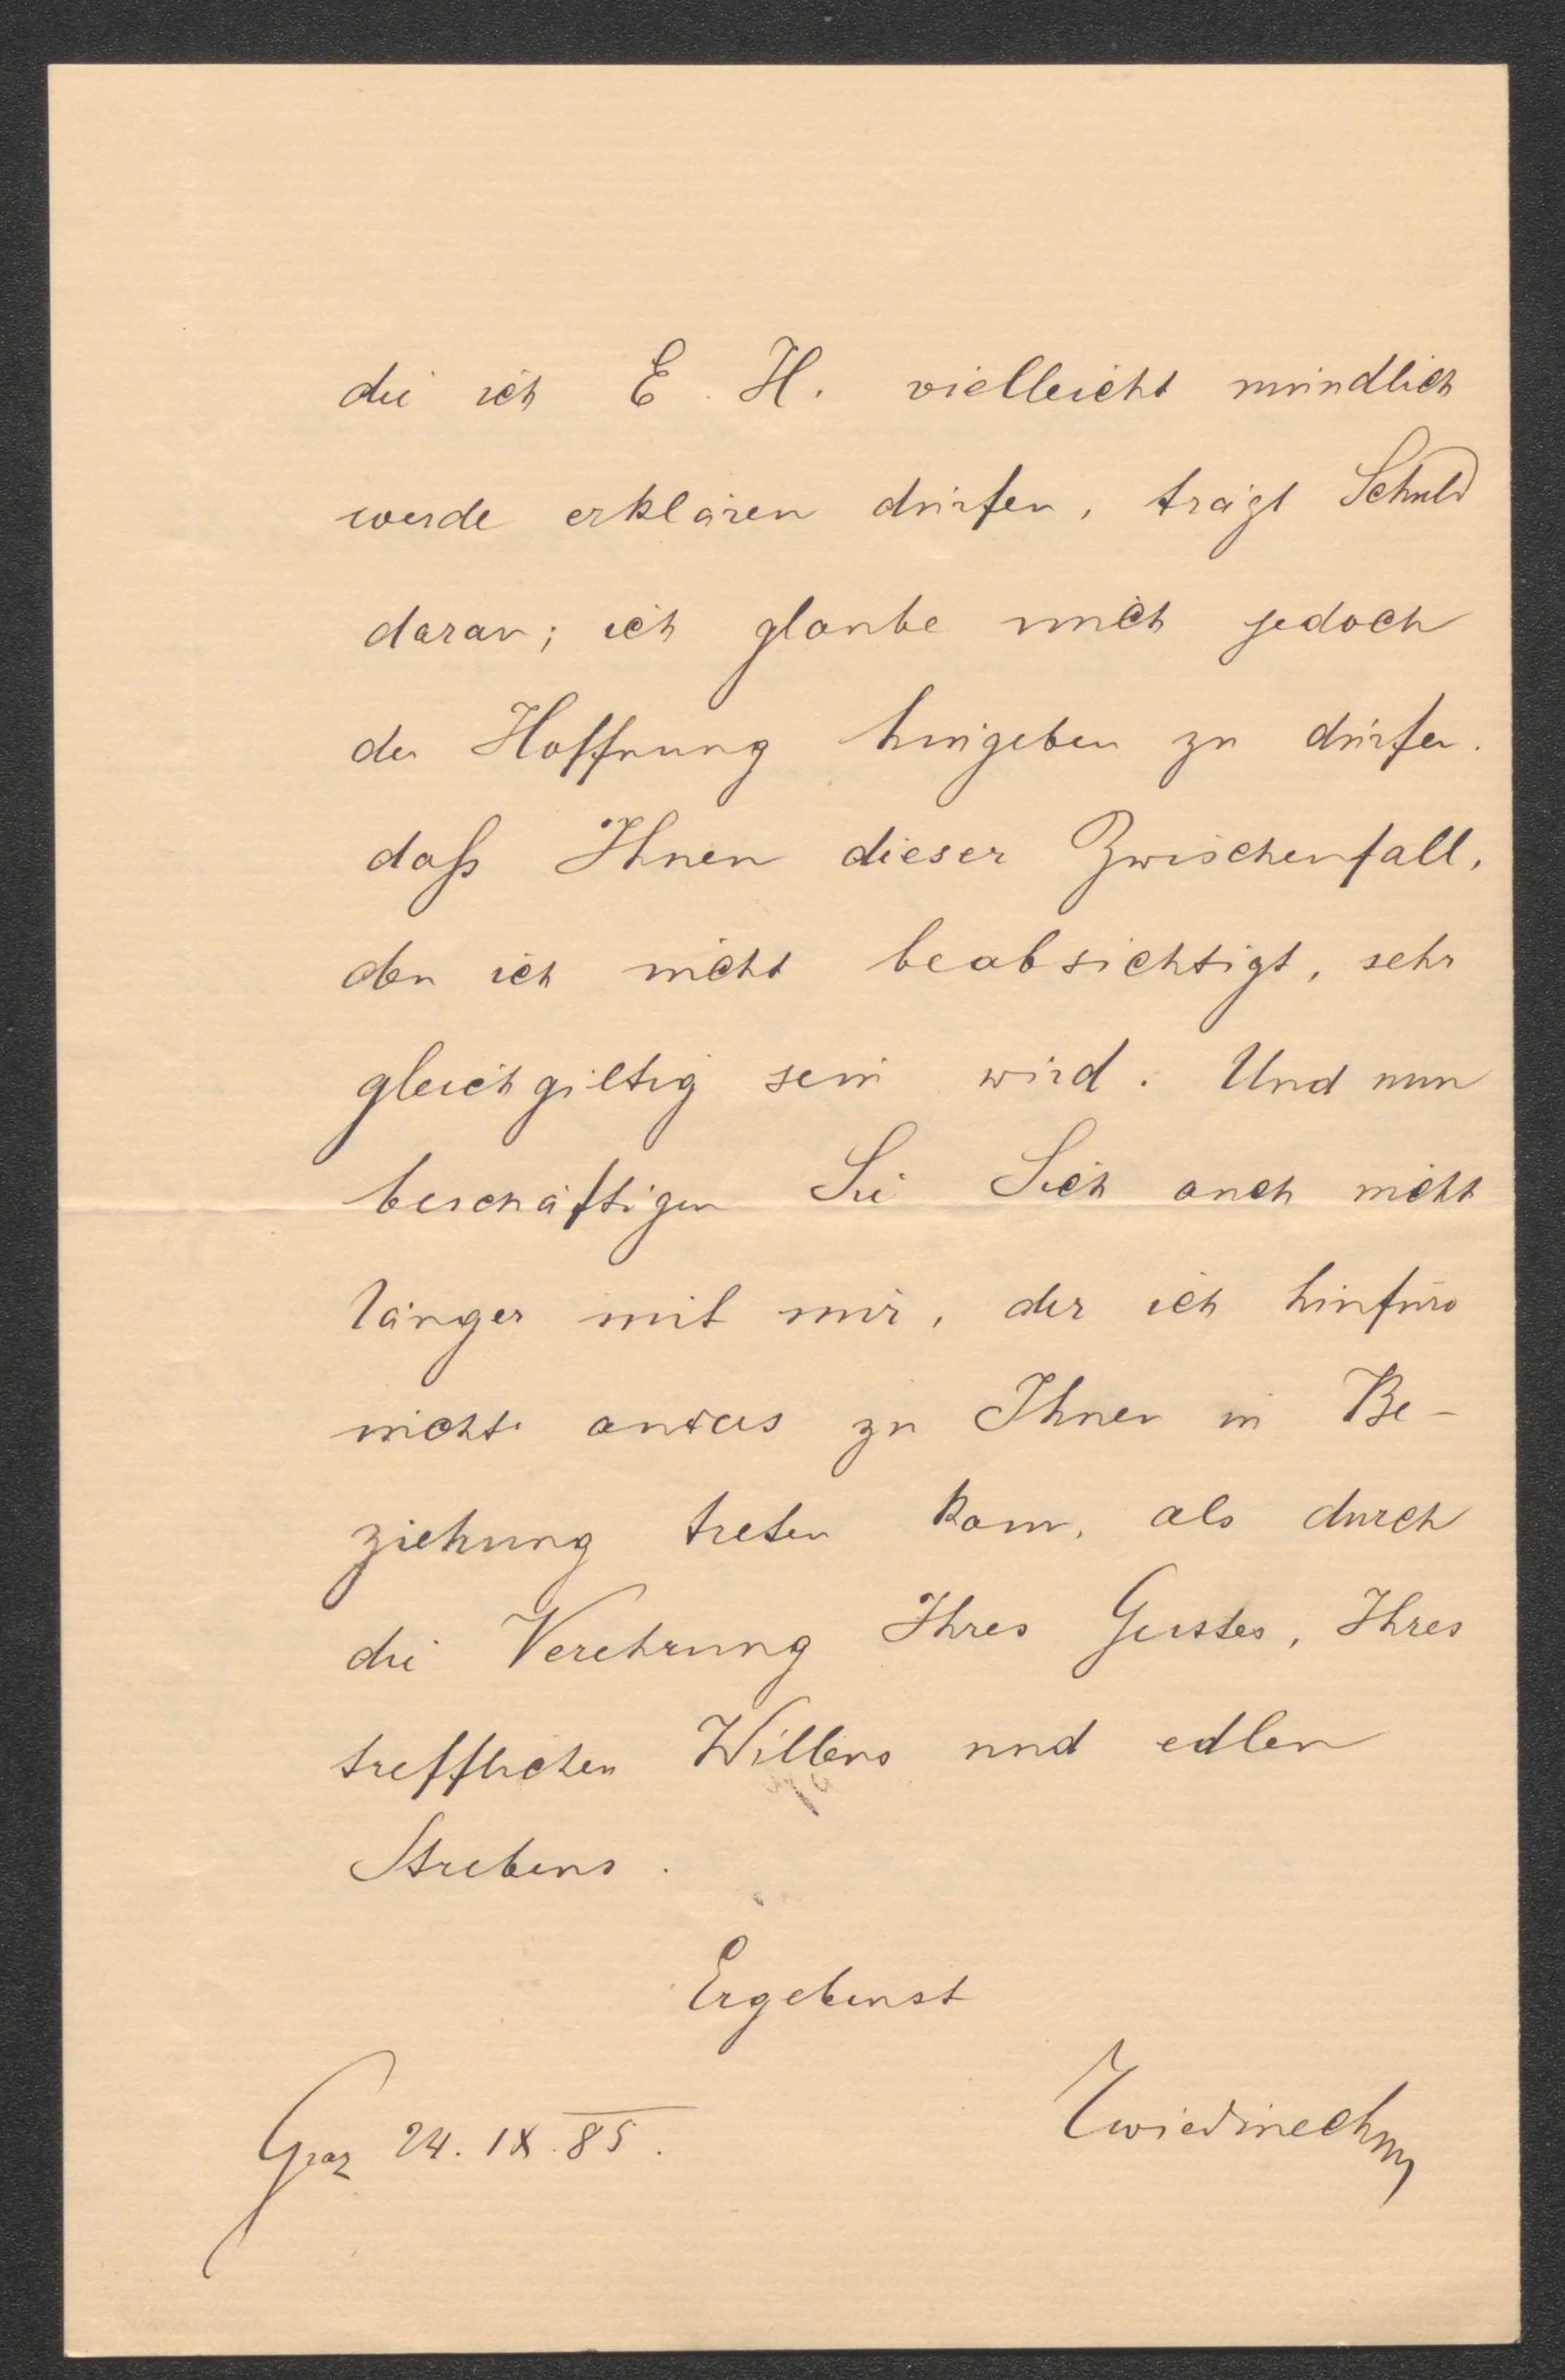 die ich E. H. vielleicht mündlich
werde erklären dürfen, trägt Schuld
daran; ich glaube mich jedoch
der Hoffnung hingeben zu dürfen.
daß Ihnen dieser Zwischenfall,
den ich nicht beabsichtigt, sehr
gleichgiltig sein wird. Und nun
beschäftigen Sie Sich auch nicht
länger mit mir, der ich hinfüro
nicht anders zu Ihnen in Be-
ziehung treten kann, als durch
die Verehrung Ihres Geistes, Ihres
trefflichen Willens und edlen
Strebens.
Ergebenst
Zwiedineck
Graz 24. IX. 85.